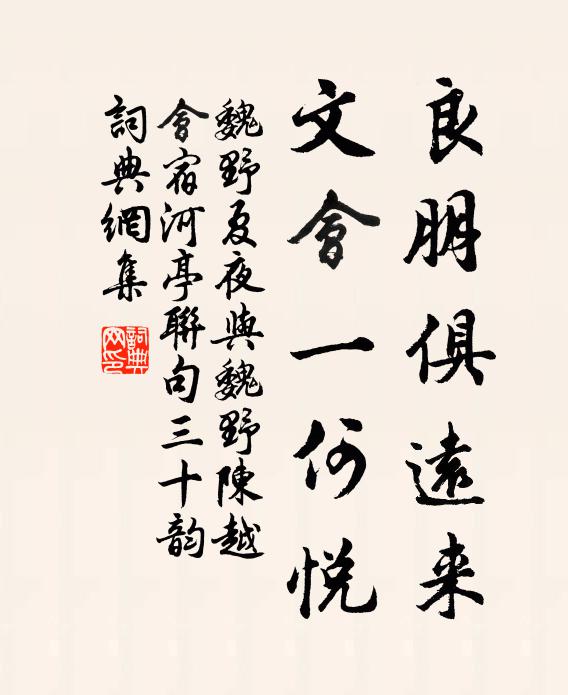 良朋俱遠来
文會一何悦
魏野夏夜與魏野陳越
會宿河亭聯句三十韵
詞典網集
詞典網印